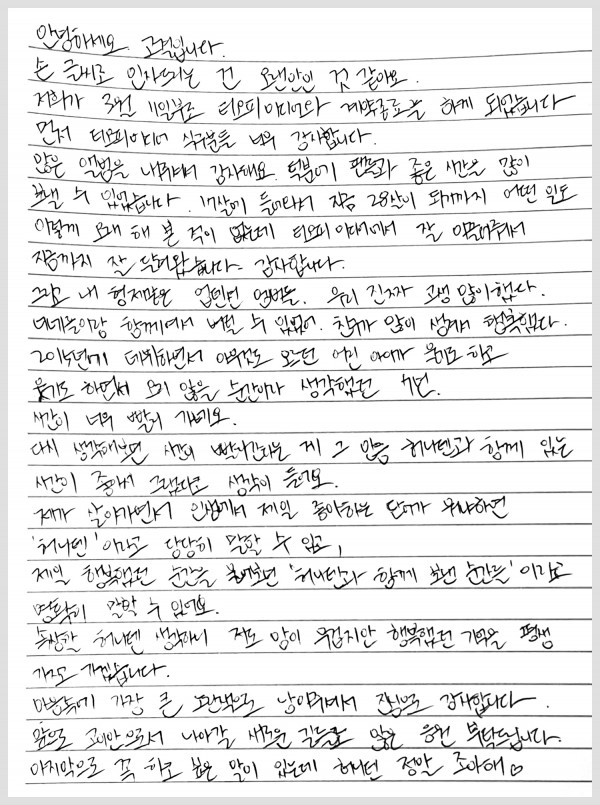 안녕하세요. 고결입니다.
손 글씨로 인사드리는 건 오랜만인 것 같아요.
저희가 3월 11일부로 티오피미디어와 계약종료를 하게 되었습니다
먼저 티오피미디어 식구분들 너무 감사합니다.
많은 앨범을 내주셔서 감사해요. 덕분에 팬들과 좋은 시간을 많이
보낼 수 있었습니다. 17살에 들어와서 지금 28살이 되기까지 어떤 일도
이렇게 오래 해 본 적이 없는데 티오피미디어에서 잘 이끌어주셔서
지금까지 잘 달려왔습니다. 감사합니다.
그리고 내 형제같은 업텐션 멤버들. 우리 진짜 고생 많이했다.
너네들이랑 함께여서 버틸 수 있었어. 친구가 많이 생겨서 행복했다.
2015년에 데뷔하면서 아무것도 몰랐던 어린 아이가 울기도 하고
웃기도 하면서 오지 않을 순간이라 생각했던 7년.
시간이 너무 빨리 가네요.
다시 생각해보면 시간이 빨리간다는 게 그 만큼 허니텐과 함께 있는
시간이 좋아서 그랬다고 생각이 들어요.
제가 살아가면서 인생에서 제일 좋아하는 단어가 뭐냐하면
'허니텐' 이라고 당당히 말할 수 있고,
제일 행복했던 순간을 물어보면 '허니텐과 함께 보낸 순간들' 이라고
명확히 말할 수 있어요.
속상할 허니텐 생각하니 저도 맘이 무겁지만 행복했던 기억을 평생
가지고 가겠습니다.
마음속에 가장 큰 조각으로 남아줘서 진심으로 감사합니다.
앞으로 고민안으로서 나아갈 새로운 길들도 많은 응원 부탁드립니다.
마지막으로 꼭 하고 싶은 말이 있는데 허니텐 정말 조아해♡